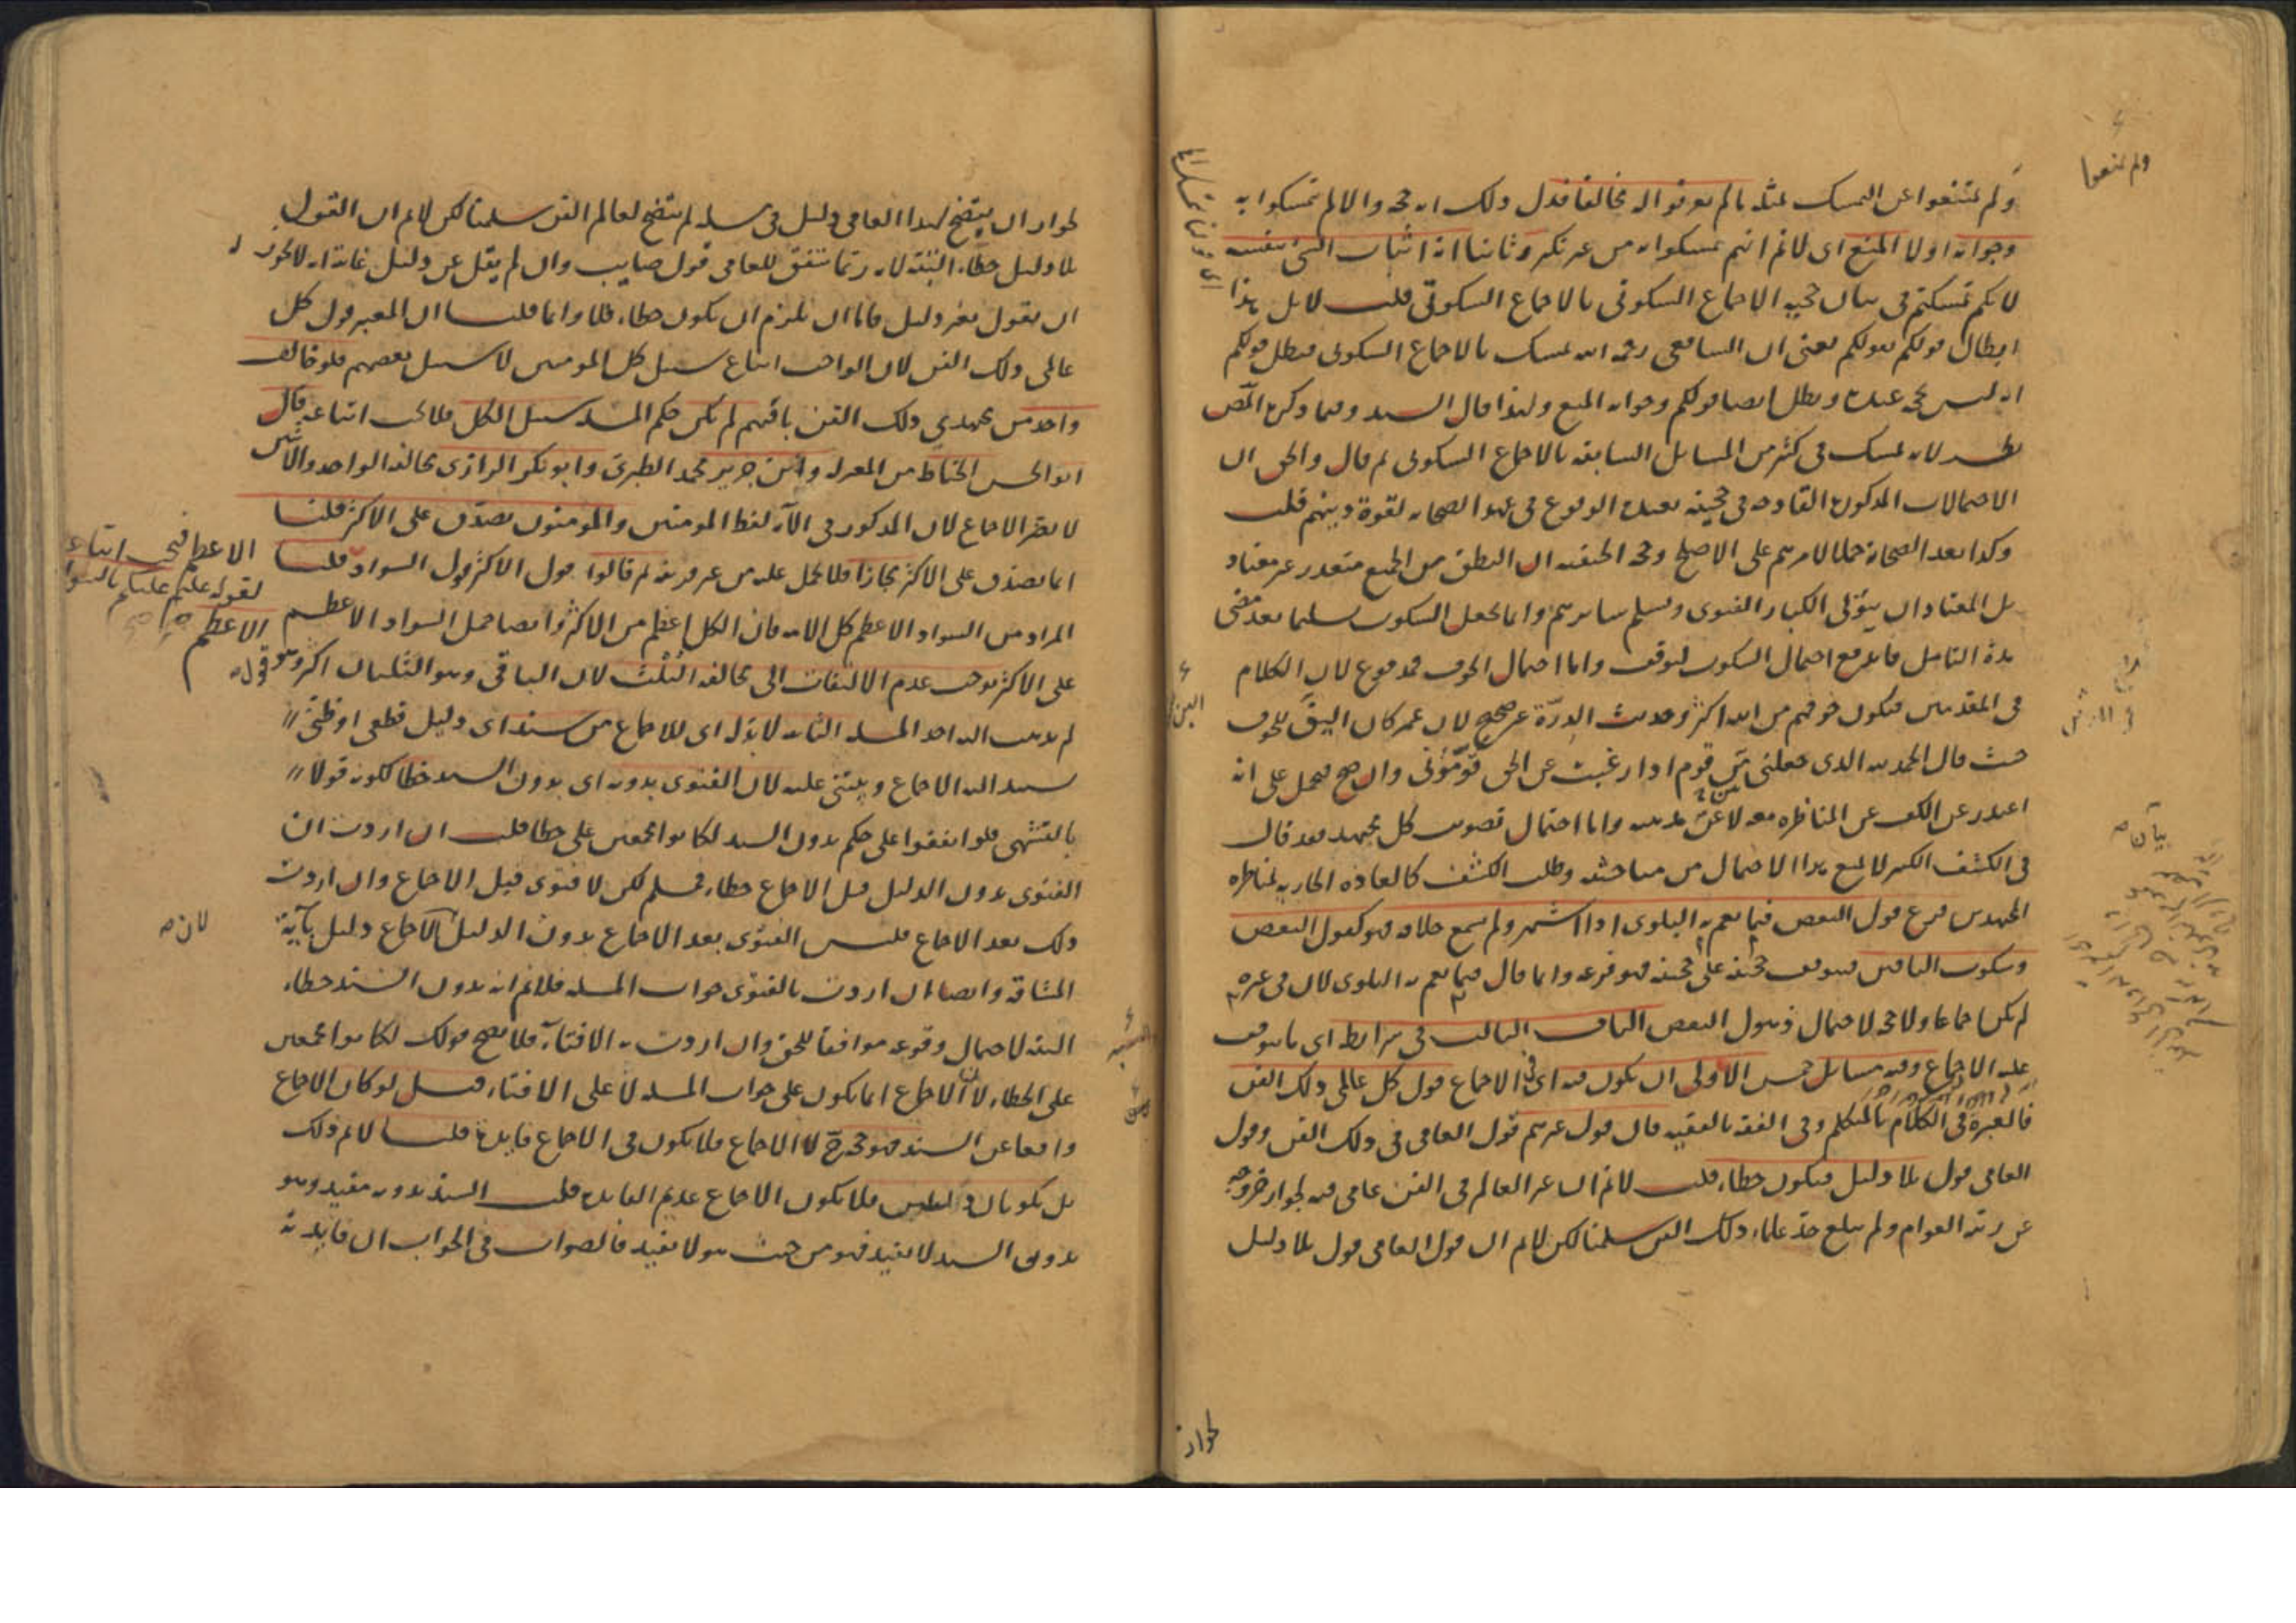 ولم يمتنعوا عن التمسك بمثله ما لم يعرفوا له مخالفا فدل ذلك انه حجة والا لم تمسكوا به
وجوابه اولا المنع اى لا نم انهم تمسكوا به من غير نكر وثانيا انه اثبات الشئ بنفسه
لانكم تمسكتم فى بيان حجية الاجماع السكوتى بالاجماع السكوتى قلت لا بل هذا
ابطال قولكم بقولكم يعنى ان الشافعى رحمه الله تمسك بالاجماع السكوتى فبطل قولكم
انه ليس بحجة عنده وبطل ايضا قولكم وجوابه المنع ولهذا قال السيد وفيما ذكره المص
نظر لانه تمسك فى كثير من المسايل السابقة بالاجماع السكوتى ثم قال والحق ان
الاحتمالات المذكورة القادحة فى حجيته بعيدة الوقوع فى عهد الصحابة لقوة دينهم قلت
وكذا بعد الصحابة حملا لامرهم على الاصلح وحجة الحنفية ان النطق من الجميع متعذر غير معتاد
بل المعتاد ان يتولى الكبار الفتوى ويسلم سايرهم وانما يجعل السكوت تسليما بعد مضى
مدة التامل فاندفع احتمال السكوت لتوقف واما احتمال الخوف فمدفوع لان الكلام
فى المقدمين فيكون خوفهم من الله اكثر وحديث الدرة غير صحيح لان عمر كان اليق للخوف
حيث قال الحمد لله الذى جعلنى بين قوم اذا رغبت عن الحق قومونى وان صح فيحمل على انه
اعتذر عن الكف عن المناظرة معه لا عن مذهبه واما احتمال تصويب كل مجتهد فقد قال
فى الكشف الكبير لا يمنع هذا الاحتمال من مباحثته وطلب الكشف كالعادة الجارية بمناظرة
المجتهدين فرع قول البعض فيما يعم به البلوى اذا اشتهر ولم يسمع خلافه فهو كقول البعض
وسكوت الباقين فيتوقف حجيته على حجيته فهو فرعه وانما قال فيما يعم به البلوى لان فى غيره
لم يكن اجماعا ولا حجة لاحتمال ذهول البعض الباب الثالث فى شرايطه اى ما يتوقف
عليه الاجماع وفيه مسائل خمس الاولى ان يكون فيه اى فى الاجماع قول كل عالمى ذلك الفن
فالعبرة فى الكلام بالمتكلم وفى الفقه بالفقيه فان قول غيرهم قول العامى فى ذلك الفن وقول
العامى قول بلا دليل فيكون خطاء قلت لا نم ان غير العالم فى الفن عامى فيه لجواز خروجه
عن رتبة العوام ولم يبلغ حد علماء ذلك الفن سلمنا لكن لا نم ان قول العامى قول بلا دليل
ولم يمنعوا
بيانه
لجواز
لجواز ان يتضح لهذا العامى دليل فى مسئلة لم يتضح لعالم الفن سلمنا لكن لا نم ان القول
بلا دليل خطاء البتة لانه ربما يتفق للعامى قول صايب وان لم يقل عن دليل غايته انه لا يجوز له
ان يقول بغير دليل فاما ان يلزم ان يكون خطاء فلا وانما قلت ان المعتبر قول كل
عالمى ذلك الفن لان الواجب اتباع سبيل كل المومنين لا سبيل بعضهم فلو خالف
واحد من مجتهدى ذلك الفن باقيهم لم يكن حكم المسئلة سبيل الكل فلا يجب اتباعه قال
ابو الحسن الخياط من المعتزلة وابن جرير محمد الطبرى وابو بكر الرازى مخالفة الواحد والاثنين
لا يضر الاجماع لان المذكور فى الآية لفظ المومنين والمومنون يصدق على الاكثر قلنا
انما يصدق على الاكثر مجازا فلا يحمل عليه من غير قرينة ثم قالوا قول الاكثر قول السواد قلت
المراد من السواد الاعظم كل الامة فان الكل اعظم من الاكثر وايضا حمل السواد الاعظم
على الاكثر يوجب عدم الالتفات الى مخالفة الثلث لان الباقى وهو الثلثان اكثر وهو قول
لم يذهب اليه احد المسئلة الثانية لا بد له اى للاجماع من سند اى دليل قطعى او ظنى
يستند اليه الاجماع ويبتنى عليه لان الفتوى بدونه اى بدون السند خطا لكونه قولا
بالتشهى فلو اتفقوا على حكم بدون السند لكانوا مجمعين على خطا قلت ان اردت ان
الفتوى بدون الدليل قبل الاجماع خطاء فمسلم لكن لا فتوى قبل الاجماع وان اردت
ذلك بعد الاجماع فليس الفتوى بعد الاجماع بدون الدليل الاجماع دليل بآية
المشاقة وايضا ان اردت بالفتوى جواب المسئلة فلا نم انه بدون السند خطاء
البتة لاحتمال وقوعه موافقا للحق وان اردت به الافتاء فلا يصح قولك لكانوا مجمعين
على الخطاء لان الاجماع انما يكون على جواب المسئلة لا على الافتاء قيل لو كان الاجماع
واقعا عن السند فهو حجة لا الاجماع فلا يكون فى الاجماع فايدة قلنا لا نم ذلك
بل يكونان دليلين فلا يكون الاجماع عديم الفايدة قلت السند بدونه مفيد وهو
بدون السند لا يفيد فهو من حيث هو لا يفيد فالصواب فى الجواب ان فايدته
الاعظم فيجب اتباعه
لقوله عليه السلام عليكم بالسواد
الاعظم
لانه